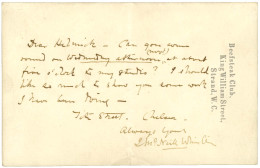 Beefsteak Club,
King William Street,
Strand, W.C.
Dear Hedmick - Can you come
(next)
round on Wednesday afternoon, at about
five o'clock to my studio? I should
like so much to show you some work
I have been doing -
Tite Street. Chelsea.
Always Yours